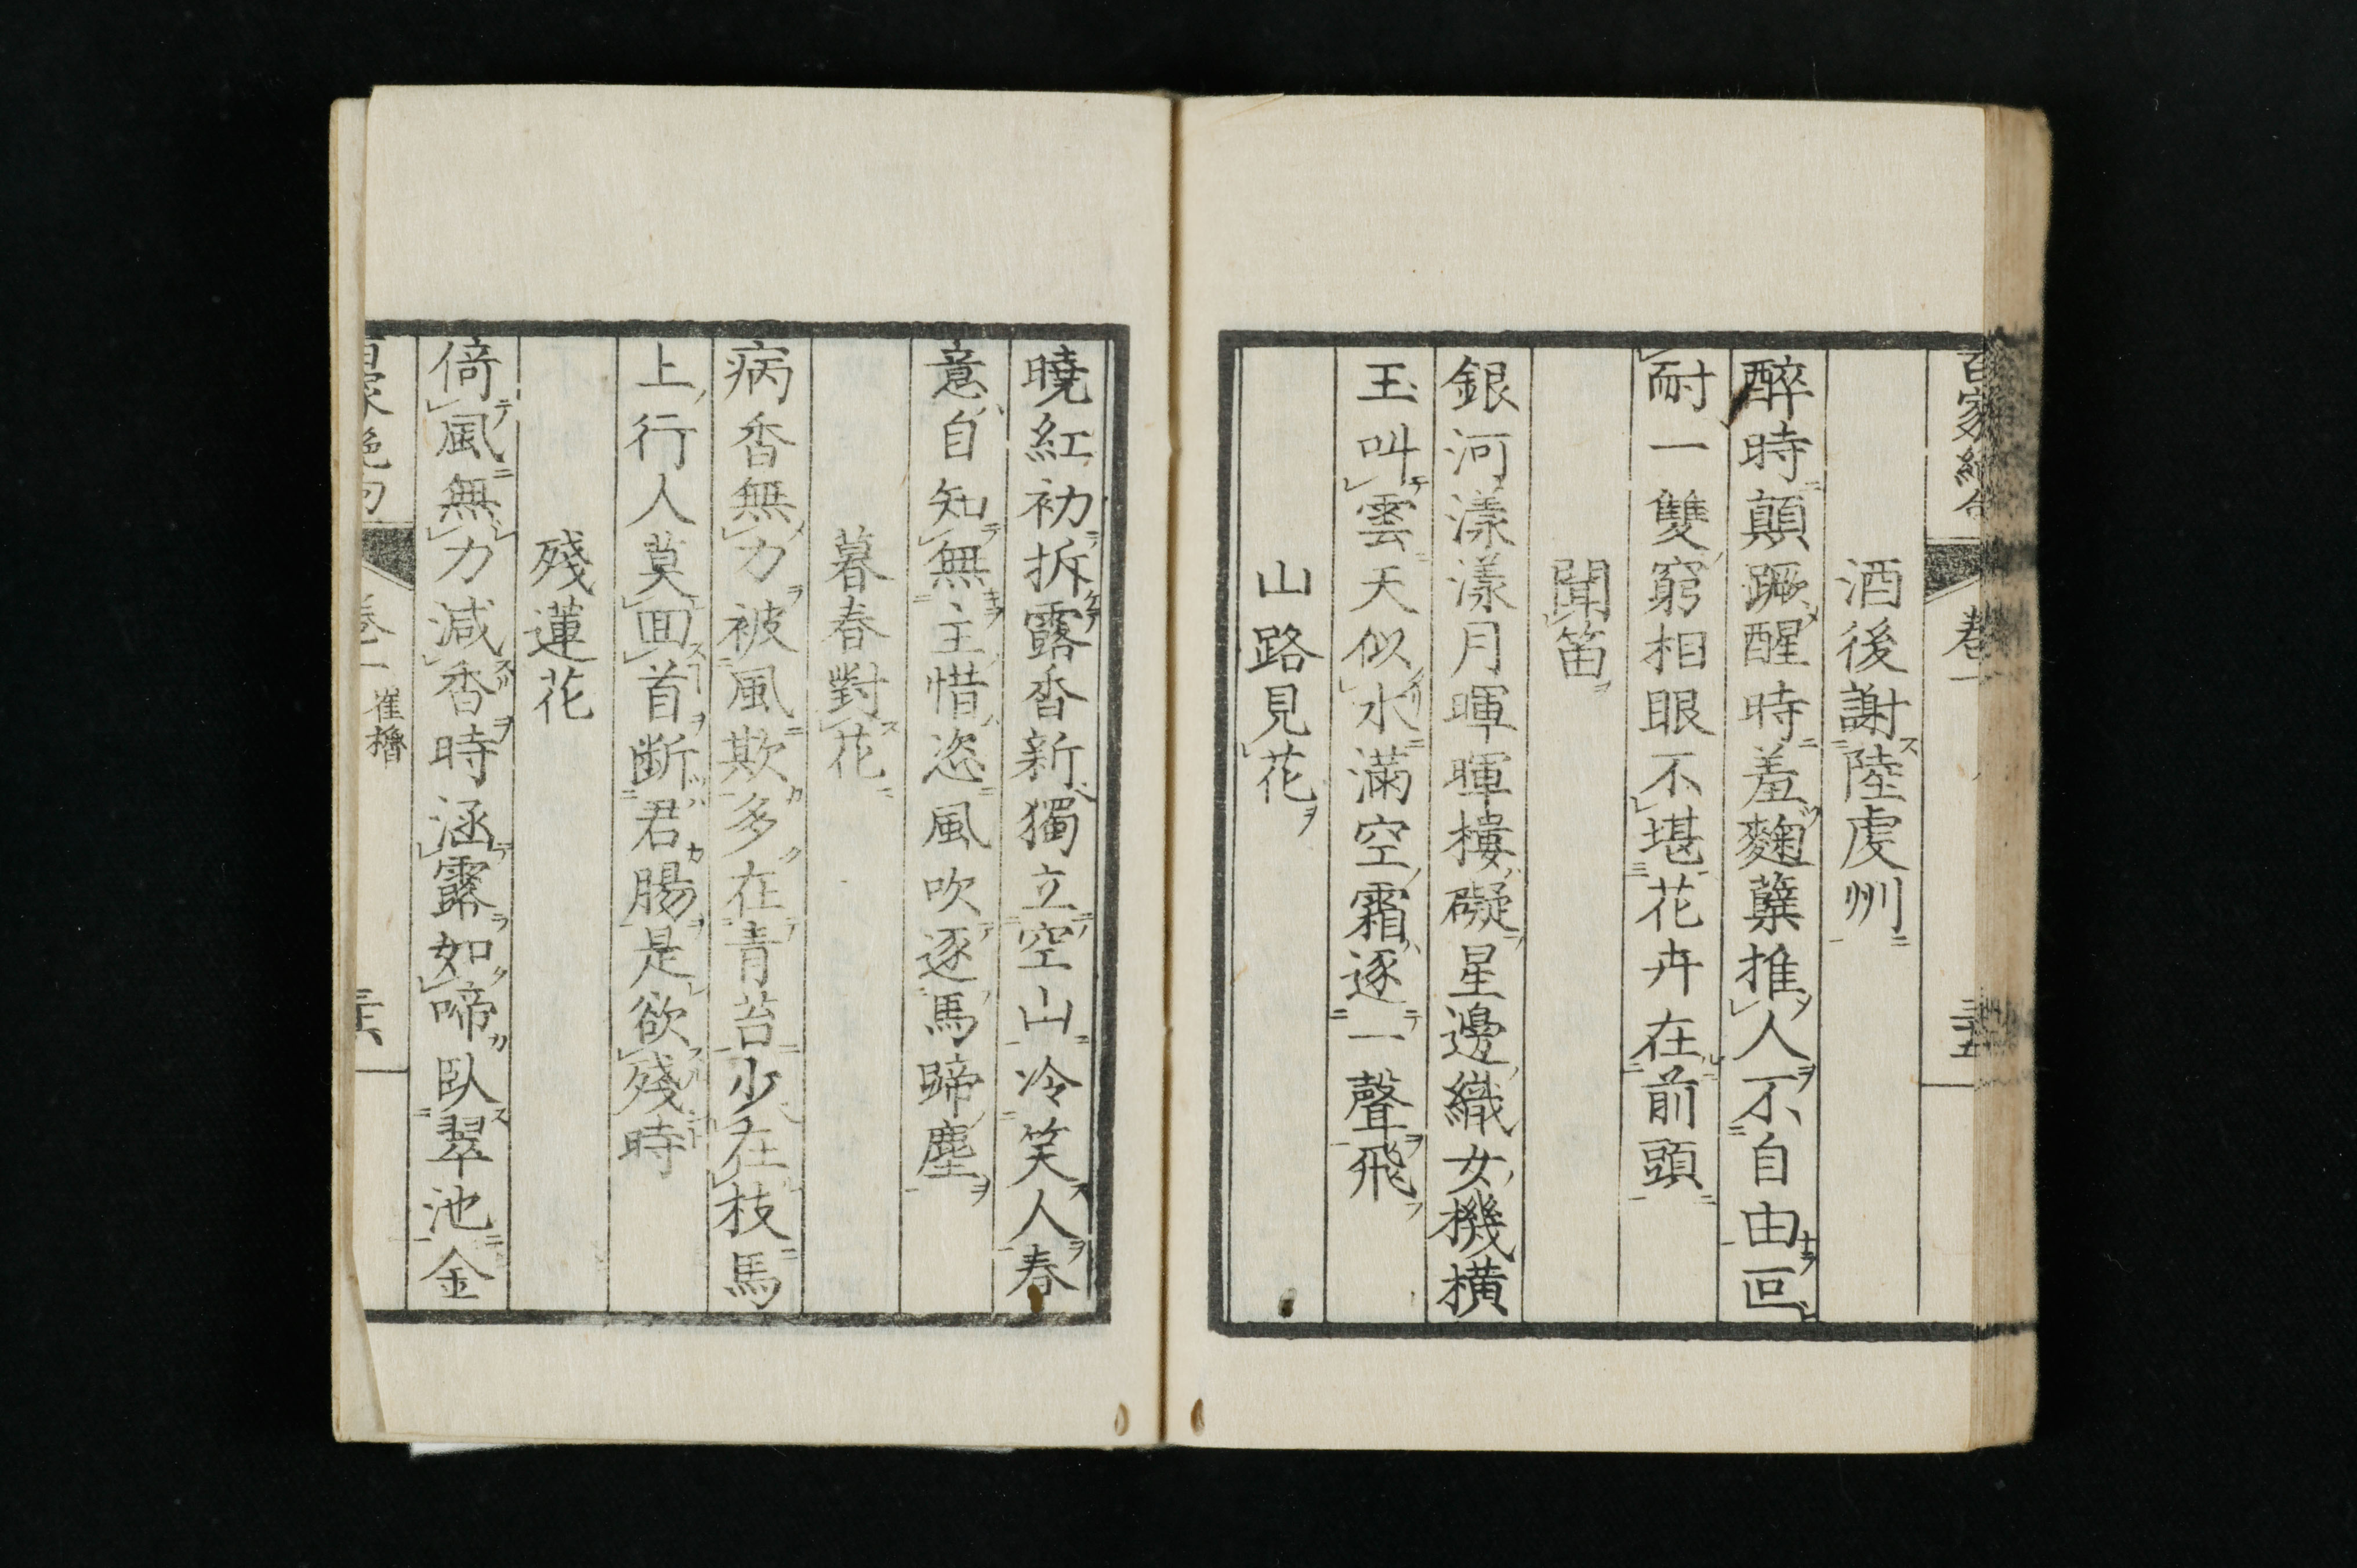 百家絶句 卷一 三十五
酒後謝陸虔州
醉時顛蹶醒時羞麴蘖推人不自由叵
耐一雙窮相眼不堪花卉在前頭
聞笛
銀河漾漾月暉暉樓礙星邊織女機橫
玉叫雲天似水滿空霜逐一聲飛
山路見花
曉紅初拆露香新獨立空山冷笑人春
意自知無主惜恣風吹逐馬蹄塵
暮春對花
病香無力被風欺多在青苔少在枝馬
上行人莫回首斷君腸是欲殘時
殘蓮花
倚風無力減香時涵露如啼臥翠池金
百家絶句 卷一 崔櫓